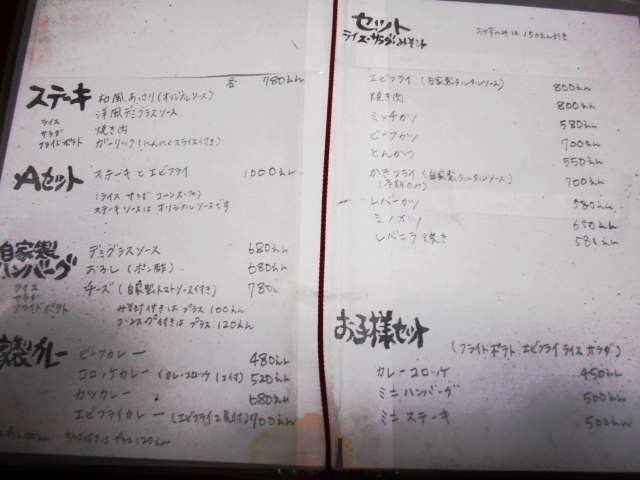 ステーキ
各 780えん
和風あっさり(オリジナルソース)
洋風デミグラスソース
焼き肉
ガーリック(にんにくスライス付き)
ライス
サラダ
フライドポテト
Aセット
ステーキとエビフライ 1000えん
(ライス サラダ コーンスープ)
ステーキソースはオリジナルソースです
自家製
ハンバーグ
ライス
サラダ
フライドポテト
デミグラスソース 680えん
おろし(ポン酢) 680えん
チーズ(自家製トマトソース付き) 780えん
みそ汁付きは プラス 100えん
コーンスープ付きは プラス 120えん
製カレー
ビーフカレー 480えん
コロッケカレー(カレーコロッケ1コ付) 520えん
カツカレー 680えん
エビフライカレー(エビフライ2尾付) 700えん
セット
ライス・サラダ・みそ汁
おかずのみは 150えん引き
エビフライ(自家製タルタルソース) 800えん
焼き肉 800えん
ミンチかつ 580えん
ビーフかつ 700えん
とんかつ 550えん
かきフライ(自家製タルタルソース) 700えん
(冬期のみ)
レバーかつ 580えん
ミノかつ 650えん
レバニラ焼き 580えん
お子様セット
(フライドポテト エビフライ ライス サラダ)
カレーコロッケ 450えん
ミニハンバーグ 500えん
ミニステーキ 500えん